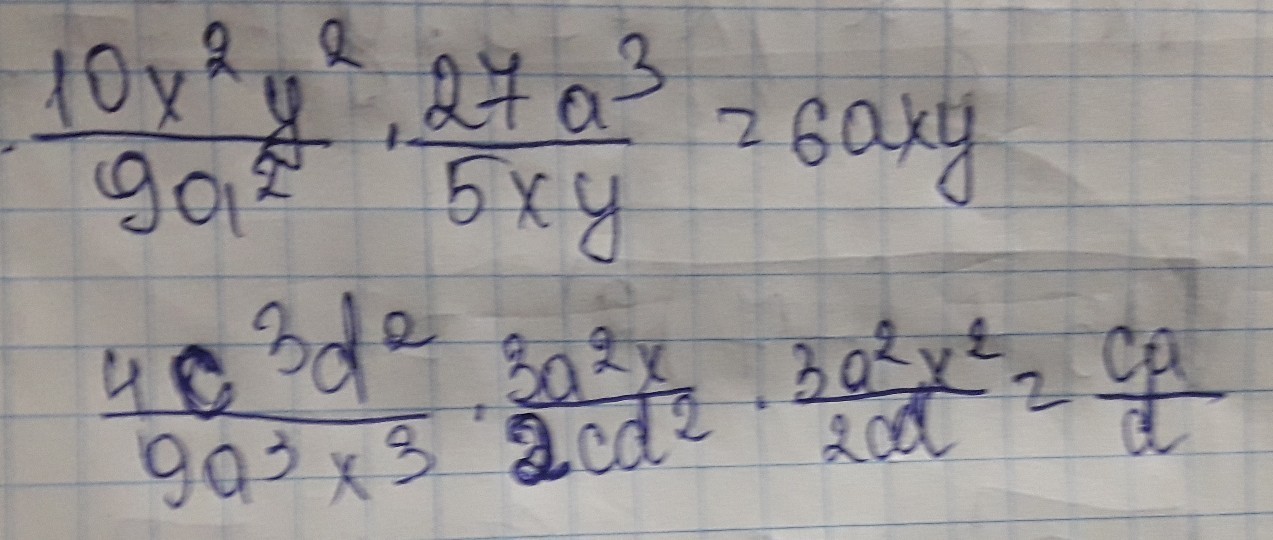 10x²y²/9a² · 27a³/5xy = 6axy
4c³d²/9a³x³ · 3a²x/2cd² · 3a²x²/2cd = ca/d